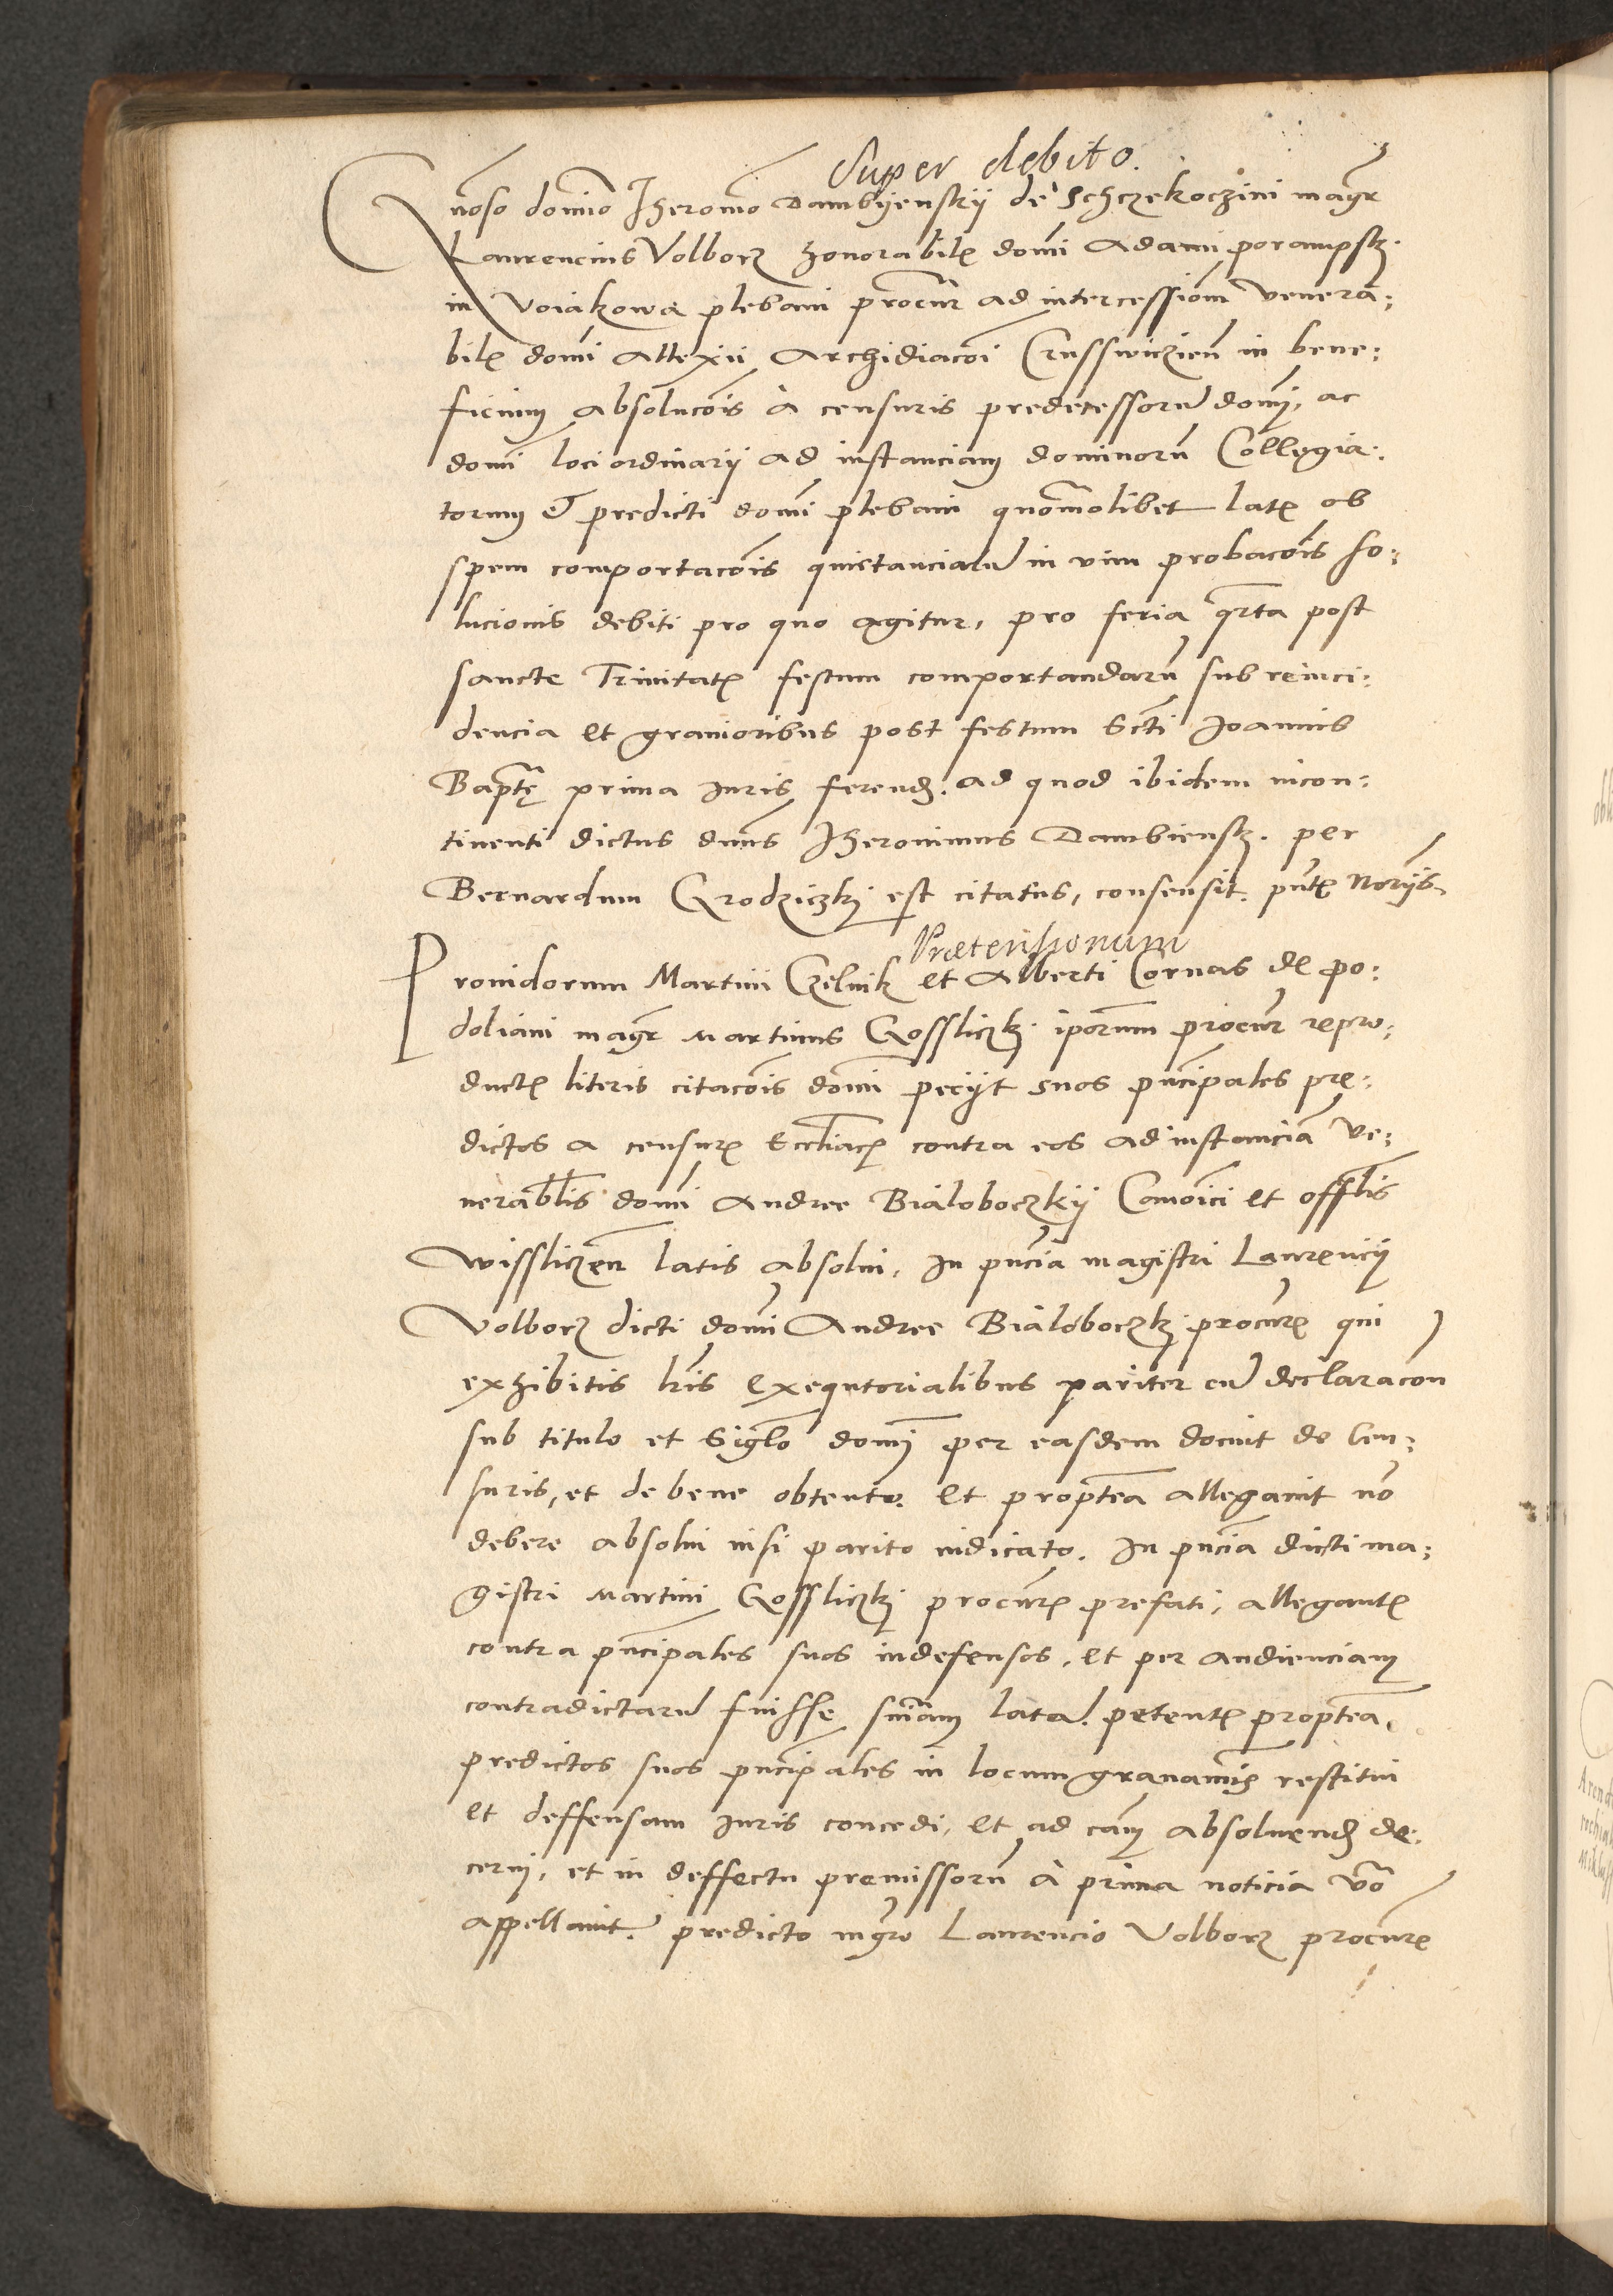 Super debito.
Gnoso domino Hieronimo Dambyenskij de Schczekoczini magr
Laurencius Volborz honorabilis domi Adami porampsk.
in Voiakowa plebani procur ad intercessionem venera:
bilis domi Allexii Archidiaconi Crusswiczien in bene:
ficium absolucois à censuris predecessorum domi, ac
domi loci ordinarij ad instanciam dominorum Collegia:
torum et predicti domi plebani quomolibet latis ob
spem comportacois quietanciarum in vim probacois so:
lucionis debiti pro quo agitur, pro feria qrta post
sancte Trinitatis festum comportandarum sub reinci:
dencia et gravioribus post festum Scti Joannis
Baptę prima Juris ferend. ad quod ibidem incon:
tinenti dictus dnus Hieronimus Dambiensk. per
Bernardum Grodziczkj est citatus, consensit. pntis Norijs
Prætensionum
Providorum Martini Czelnik et Alberti Cornas de po:
doliani magr Martinus Gossliczkj iporum procur repro:
ductis literis citacois domi pecijt suos pncipales prę:
dictos a censuris Eccliacis contra eos ad instancia ve:
nerabilis domi Andree Bialoboczkij Canoici et offlis
Wissliczen latis absolvi, In pncia magistri Laurencij
Volborz dicti domi Andree Bialoboczkj procuris qui
exhibitis lris exequtorialibus pariter cum declaracon
sub titulo et Siglo domi per easdem docuit de Cen:
suris, et de bene obtento. Et proptea allegavit no
debere absolvi nisi parito iudicato. In pncia dicti ma:
gistri Martini Gossliczkj procuris prefati, allegantis
contra pncipales suos indefensos, et per audienciam
contradictarum fuisse sniam latam. petentis proptea,
predictos suos pncipales in locum gravaminis restitui
et deffensam Juris concedi, et ad cam absolvend de:
cerni, et in deffectu premissorum à prima noticia vo
appellavit. predicto mgro Laurencio Volborz procure